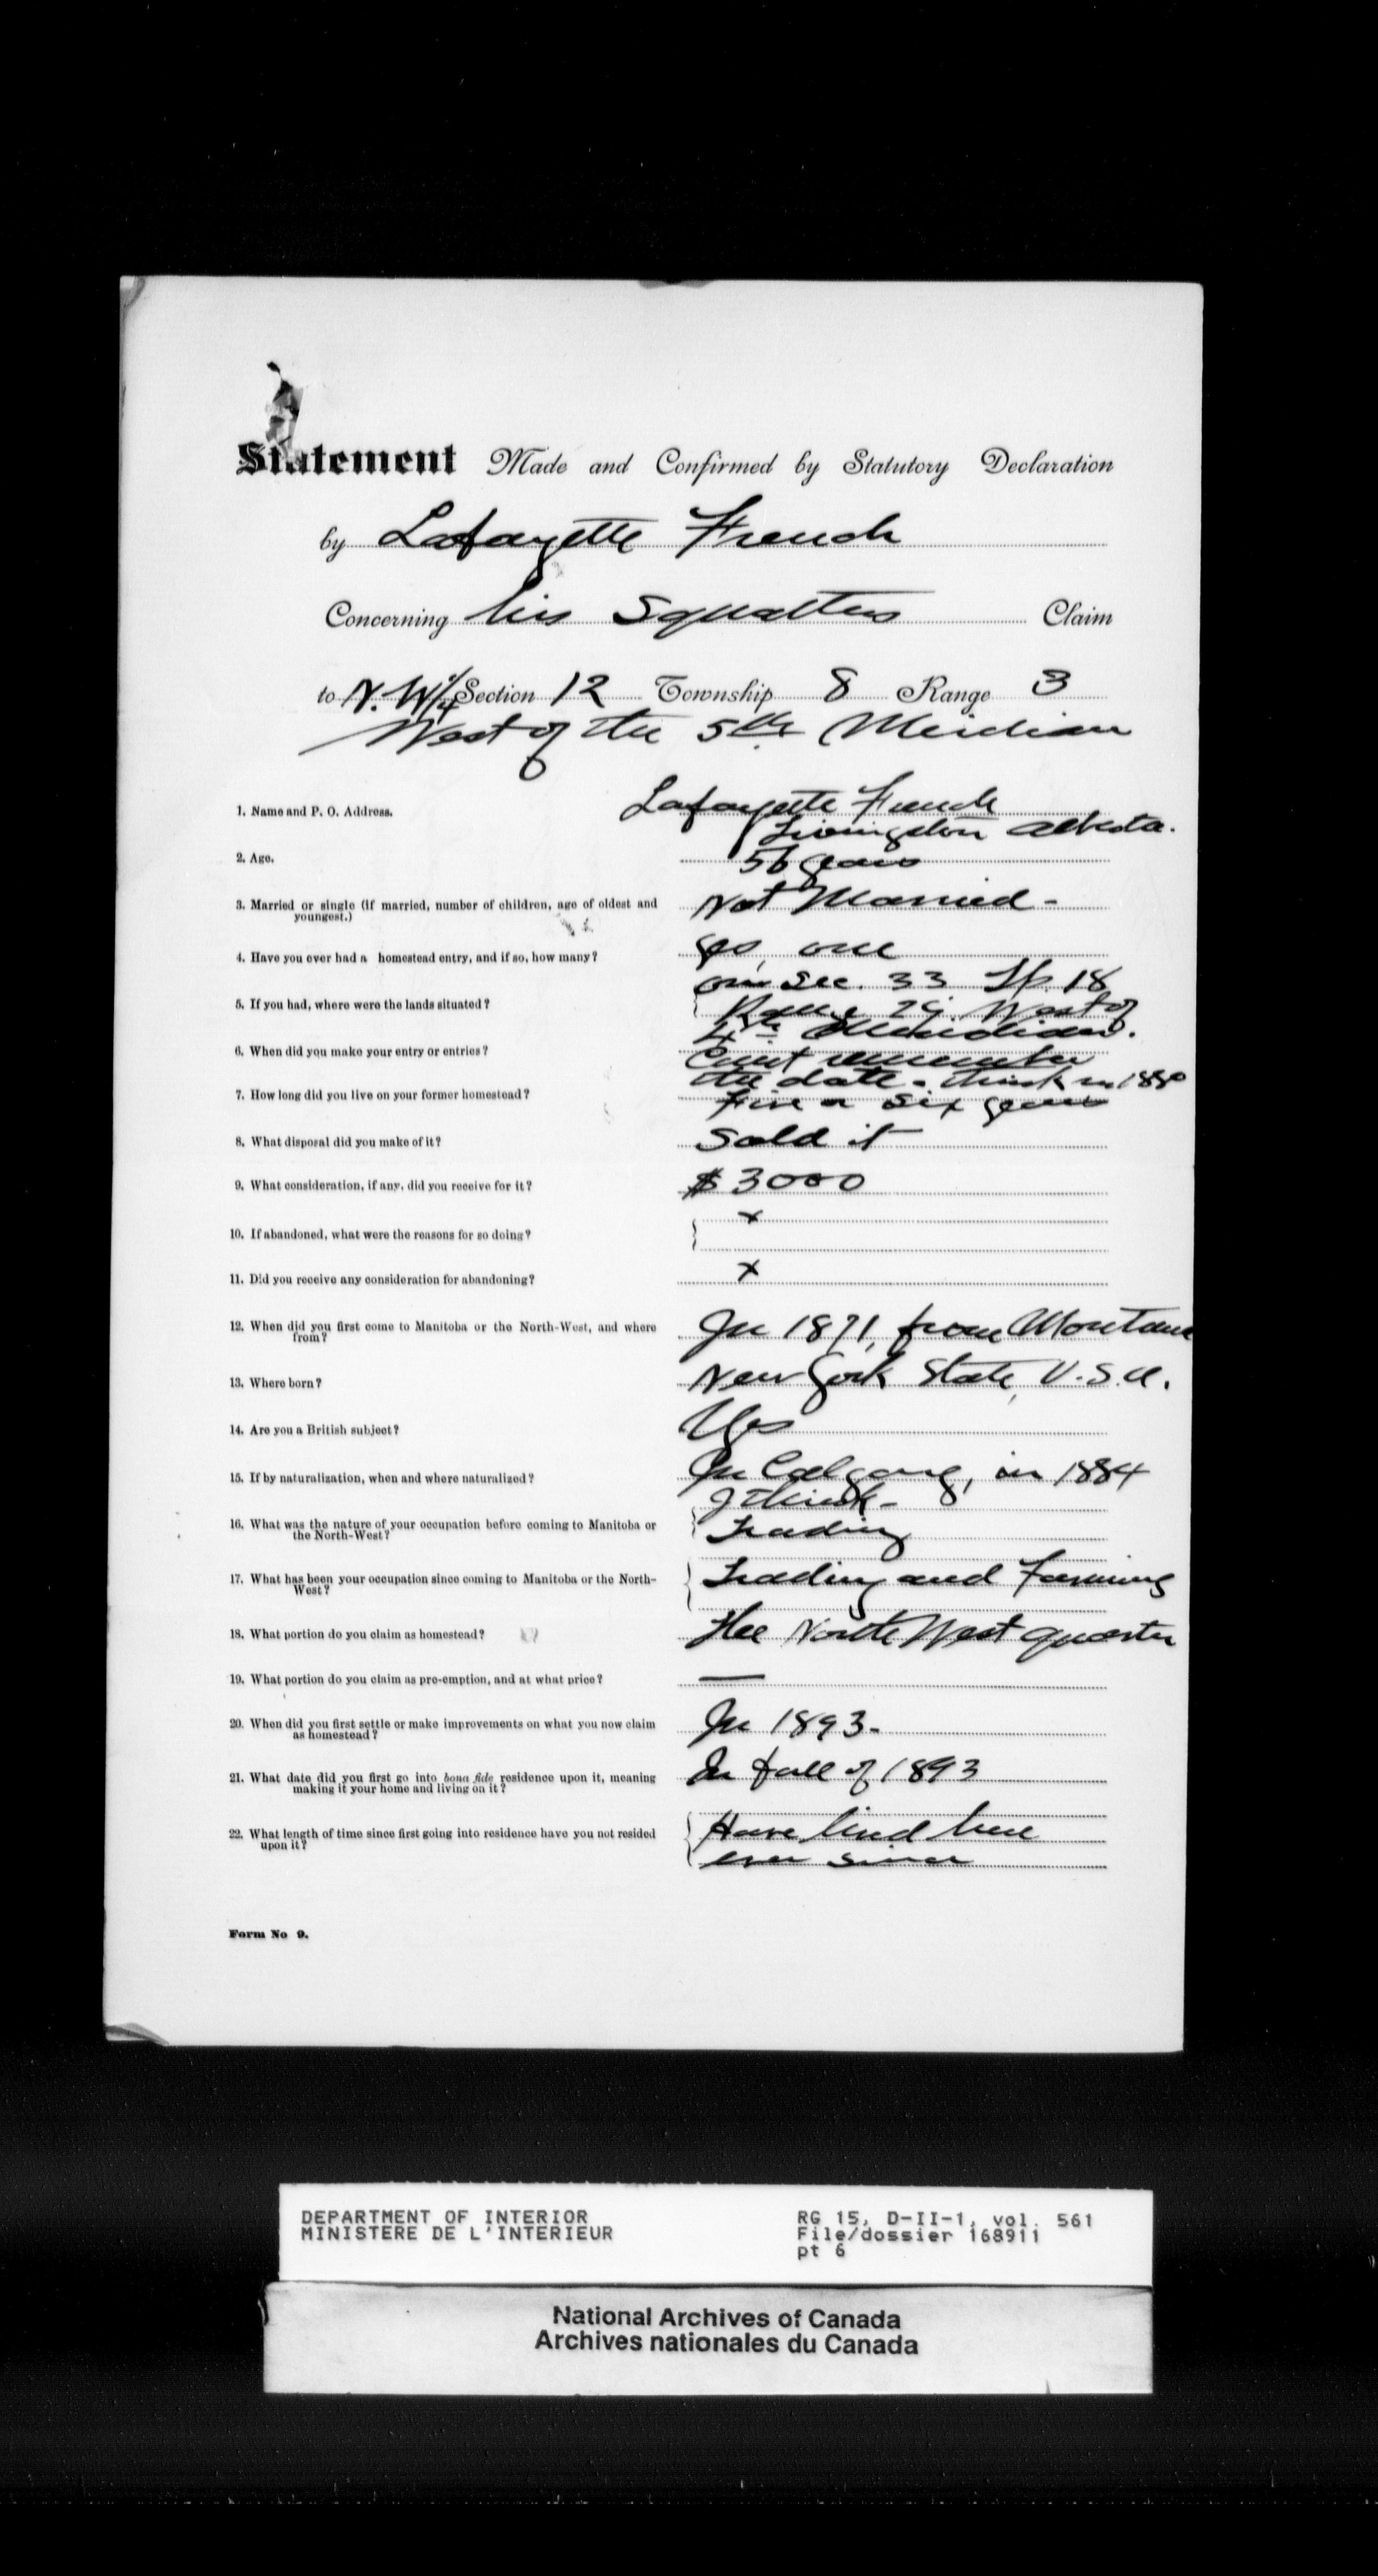 Statement Made and Confirmed by Statutory Declaration
by Lafayette French
Concerning his Squatters Claim
to N. W 1/4 Section 12 Township 8 Range 3
West of the 5th Meridian
1. Name and P. O. Address. Lafayette French
Livingston Alberta.
2. Age. 56 years
3. Married or single (if married, number of children, age of oldest and Not Married -
youngest.)
4. Have you ever had a homestead entry, and if so, how many? yes, one
on Sec. 33 Tp. 18
5. If you had, where were the lands situated? Range 29 West of
4th Meridian.
6. When did you make your entry or entries? Cant remember
the date - think in 1880
7. How long did you live on your former homestead? Five or Six years
8. What disposal did you make of it? Sold it
9. What consideration, if any, did you receive for it? $ 3000
10. If abandoned, what were the reasons for so doing? x
11. Did you receive any consideration for abandoning? x
12. When did you first come to Manitoba or the North-West, and where In 1871, from Montana
from?
13. Where born? New York State, U.S.A.
14. Are you a British subject? Yes
15. If by naturalization, when and where naturalized? In Calgary, in 1884
I think -
16. What was the nature of your occupation before coming to Manitoba or Trading
the North-West?
17. What has been your occupation since coming to Manitoba or the North- Trading and Farming
West?
18. What portion do you claim as homestead? The North West quarter
19. What portion do you claim as pre-emption, and at what price? —
20. When did you first settle or make improvements on what you now claim In 1893.
as homestead?
21. What date did you first go into bona fide residence upon it, meaning In fall of 1893
making it your home and living on it?
22. What length of time since first going into residence have you not resided Have lived here
upon it? ever since
Form No 9.
DEPARTMENT OF INTERIOR RG 15, D-II-1, vol. 561
MINISTERE DE L'INTERIEUR File/dossier 168911
pt 6
National Archives of Canada
Archives nationales du Canada